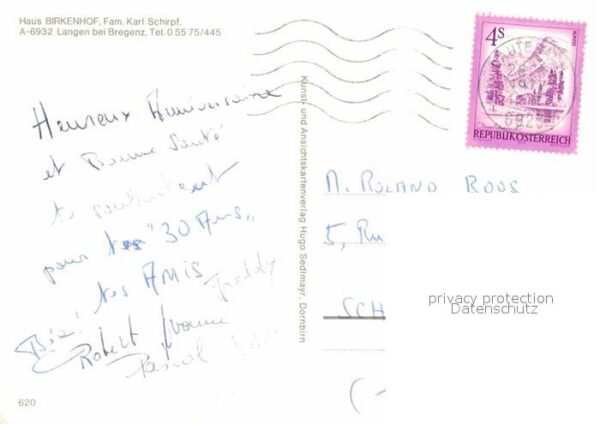 Haus BIRKENHOF, Fam. Karl Schirpf,
A-6932 Langen bei Bregenz, Tel. 0 55 75/445
Heureux Anniversaire
et Bonne Santé
te souhaitent
pour tes "30 Ans"
tes AMIS
Freddy
Biz! Robert Yvonne
Pascal
620
Kunst- und Ansichtskartenverlag Hugo Sedlmayr, Dornbirn
4S
REPUBLIK ÖSTERREICH
M. ROLAND ROOS
5, Ru
SCH
privacy protection
Datenschutz